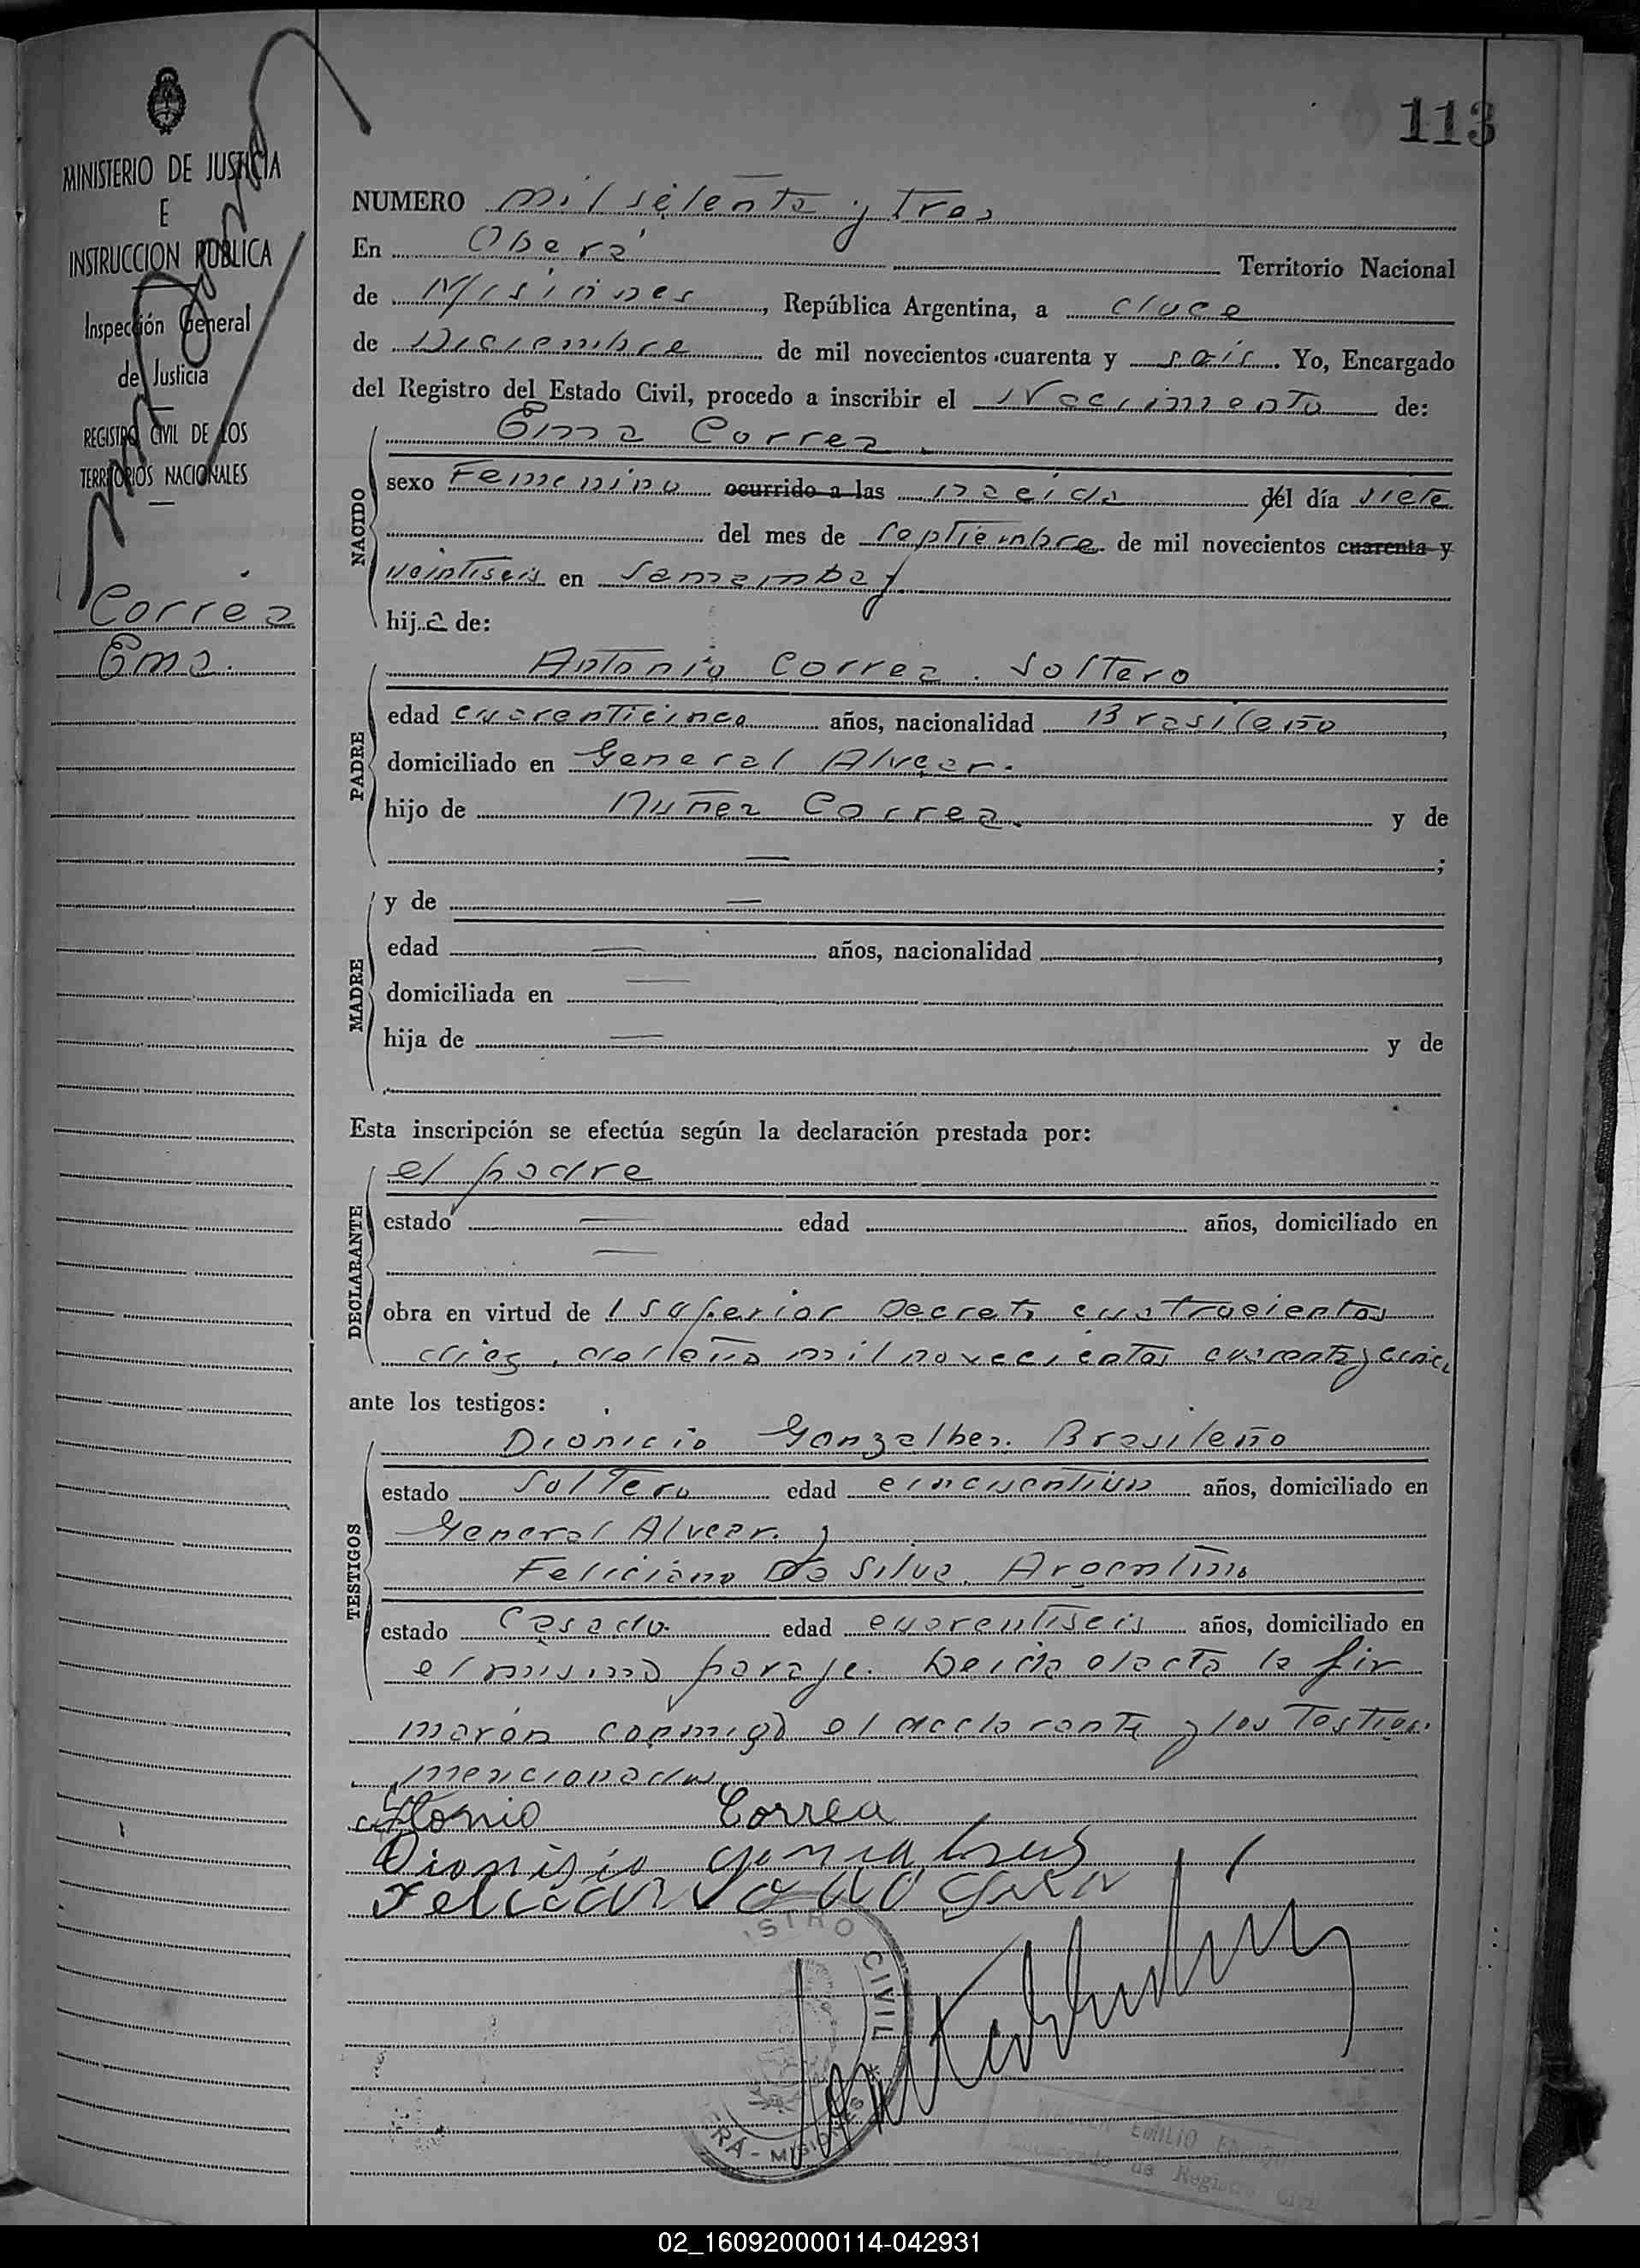 113
MINISTERIO DE JUSTICIA
E
INSTRUCCION PUBLICA
Inspección General
de Justicia
REGISTRO CIVIL DE LOS
TERRITORIOS NACIONALES
Correa
Ema.
NUMERO mil setenta y Tres
En Oberá Territorio Nacional
de Misiones, República Argentina, a doce
de Diciembre de mil novecientos cuarenta y seis. Yo, Encargado
del Registro del Estado Civil, procedo a inscribir el Nacimiento de:
NACIDO
Ema Correa.
sexo Femenino ocurrido a las nacida del día siete
del mes de septiembre de mil novecientos cuarenta y
veintiseis en Samambay
hija de:
PADRE
Antonio Correa. Soltero
edad cuarenticinco años, nacionalidad Brasileño,
domiciliado en General Alvear.
hijo de Nuñez Correa. y de
— ;
MADRE
y de —
edad — años, nacionalidad ,
domiciliada en —
hija de — y de
Esta inscripción se efectúa según la declaración prestada por:
DECLARANTE
el padre
estado — edad años, domiciliado en
—
obra en virtud de l superior Decreto cuatrocientos
diez, del año mil novecientos cuarenta y cinco
ante los testigos:
TESTIGOS
Dionicio Gonzalbes. Brasileño
estado Soltero edad cincuentiun años, domiciliado en
General Alvear. y
Feliciano Da Silva. Argentino
estado Casado. edad cuarentiseis años, domiciliado en
el mismo paraje. Leida el acta la fir
maron conmigo el declarante y los Testigos
mencionados
Antonio Correa
Dionisio
STRO CIVIL
RÁ - MISIONES
EMILIO
de Registro Civil
02_160920000114-042931